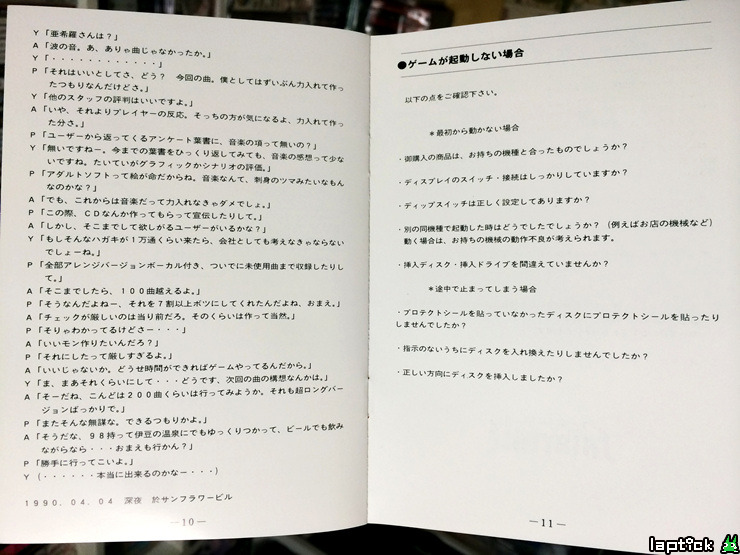 Y「亜希羅さんは？」
A「波の音。あ、ありゃ曲じゃなかったか。」
Y「・・・・・・・・・・・・」
P「それはいいとしてさ、どう？　今回の曲。僕としてはずいぶん力入れて作っ
たつもりなんだけどさ。」
Y「他のスタッフの評判はいいですよ。」
A「いや、それよりプレイヤーの反応。そっちの方が気になるよ、力入れて作っ
た分さ。」
P「ユーザーから返ってくるアンケート葉書に、音楽の項って無いの？」
Y「無いですねー。今までの葉書をひっくり返してみても、音楽の感想って少な
いですね。たいていがグラフィックかシナリオの評価。」
P「アダルトソフトって絵が命だからね。音楽なんて、刺身のツマみたいなもん
なのかな？」
A「でも、これからは音楽だって力入れなきゃダメでしょ。」
P「この際、ＣＤなんか作ってもらって宣伝したりして。」
A「しかし、そこまでして欲しがるユーザーがいるかな？」
Y「もしそんなハガキが１万通くらい来たら、会社としても考えなきゃならない
でしょーね。」
P「全部アレンジバージョンボーカル付き、ついでに未使用曲まで収録したりし
て。」
A「そこまでしたら、１００曲越えるよ。」
P「そうなんだよねー、それを７割以上ボツにしてくれたんだよね、おまえ。」
A「チェックが厳しいのは当り前だろ。そのくらいは作って当然。」
P「そりゃわかってるけどさー・・・」
A「いいモン作りたいんだろ？」
P「それにしたって厳しすぎるよ。」
A「いいじゃないか。どうせ時間ができればゲームやってるんだから。」
Y「ま、まあそれくらいにして・・・どうです、次回の曲の構想なんかは。」
A「そーだね、こんどは２００曲くらいは行ってみようか。それも超ロングバー
ジョンばっかりで。」
P「またそんな無謀な。できるつもりかよ。」
A「そうだな、９８持って伊豆の温泉にでもゆっくりつかって、ビールでも飲み
ながらなら・・・おまえも行かん？」
P「勝手に行ってこいよ。」
Y（・・・・・・本当に出来るのかなー・・・）
１９９０．０４．０４　深夜　於サンフラワービル
―10―
●ゲームが起動しない場合
以下の点をご確認下さい。
＊最初から動かない場合
・御購入の商品は、お持ちの機種と合ったものでしょうか？
・ディスプレイのスイッチ・接続はしっかりしていますか？
・ディップスイッチは正しく設定してありますか？
・別の同機種で起動した時はどうでしたでしょうか？（例えばお店の機械など）
動く場合は、お持ちの機械の動作不良が考えられます。
・挿入ディスク・挿入ドライブを間違えていませんか？
＊途中で止まってしまう場合
・プロテクトシールを貼っていなかったディスクにプロテクトシールを貼ったり
しませんでしたか？
・指示のないうちにディスクを入れ換えたりしませんでしたか？
・正しい方向にディスクを挿入しましたか？
―11―
laptick